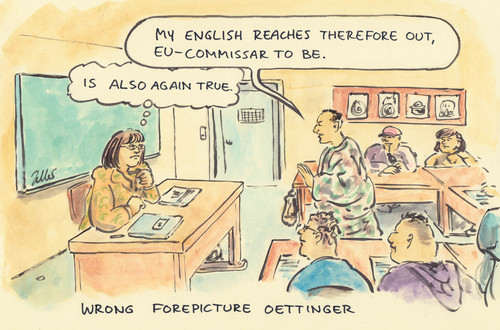 MY ENGLISH REACHES THEREFORE OUT,
EU-COMMISSAR TO BE.
IS ALSO AGAIN TRUE.
WRONG FOREPICTURE OETTINGER